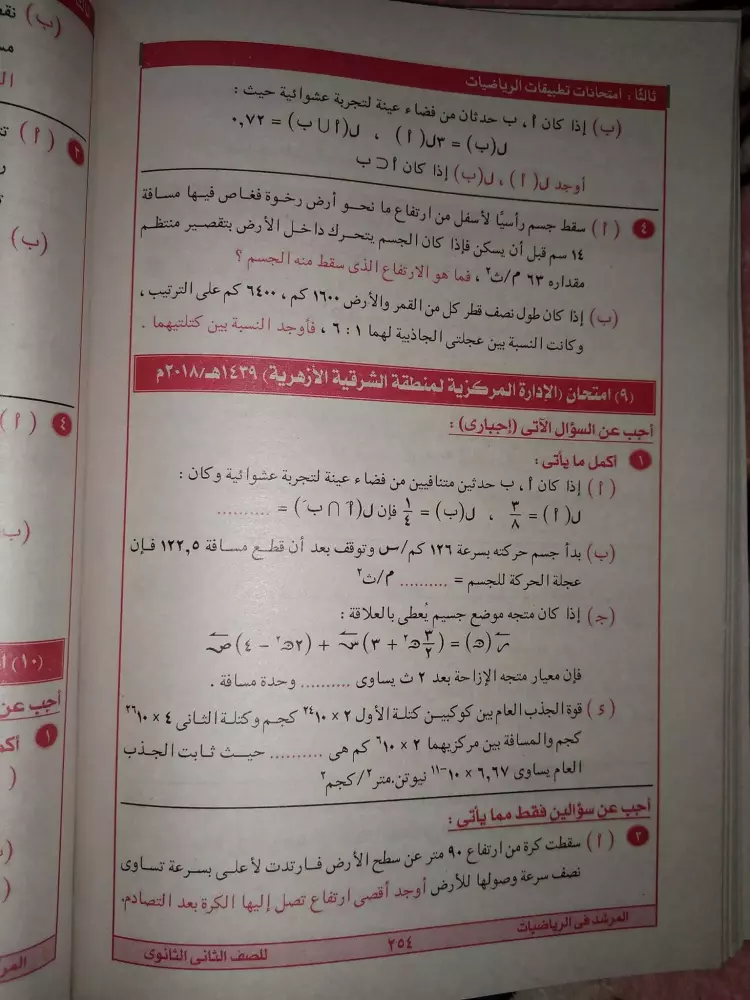 ثالثًا : امتحانات تطبيقات الرياضيات
(ب) إذا كان أ ، ب حدثان من فضاء عينة لتجربة عشوائية حيث :
ل(ب) = ٣ل(أ) ، ل(أ ∪ ب) = ٠,٧٢
أوجد ل(أ) ، ل(ب) إذا كان أ ⊂ ب
٤ (أ) سقط جسم رأسيًا لأسفل من ارتفاع ما نحو أرض رخوة فغاص فيها مسافة
١٤ سم قبل أن يسكن فإذا كان الجسم يتحرك داخل الأرض بتقصير منتظم
مقداره ٦٣ م/ث٢ ، فما هو الارتفاع الذى سقط منه الجسم ؟
(ب) إذا كان طول نصف قطر كل من القمر والأرض ١٦٠٠ كم ، ٦٤٠٠ كم على الترتيب ،
وكانت النسبة بين عجلتى الجاذبية لهما ١ : ٦ ، فأوجد النسبة بين كتلتيهما .
(٩) امتحان (الإدارة المركزية لمنطقة الشرقية الأزهرية) ١٤٣٩هـ/٢٠١٨م
أجب عن السؤال الآتى (إجبارى) :
١ أكمل ما يأتى :
(أ) إذا كان أ ، ب حدثين متنافيين من فضاء عينة لتجربة عشوائية وكان :
ل(أ) = ٣/٨ ، ل(ب) = ١/٤ فإن ل(أَ ∩ بَ) = ..........
(ب) بدأ جسم حركته بسرعة ١٢٦ كم/س وتوقف بعد أن قطع مسافة ١٢٢,٥ فإن
عجلة الحركة للجسم = .......... م/ث٢
(جـ) إذا كان متجه موضع جسيم يُعطى بالعلاقة :
ر(ﻫ) = (٣/٢ ﻫ٢ + ٣) س + (٢ﻫ٢ − ٤) ص
فإن معيار متجه الإزاحة بعد ٢ ث يساوى .......... وحدة مسافة .
(ء) قوة الجذب العام بين كوكبين كتلة الأول ٢ × ١٠^٢٤ كجم وكتلة الثانى ٤ × ١٠^٢٦
كجم والمسافة بين مركزيهما ٢ × ١٠^٦ كم هى .......... حيث ثابت الجذب
العام يساوى ٦,٦٧ × ١٠^−١١ نيوتن.متر٢/كجم٢
أجب عن سؤالين فقط مما يأتى :
٢ (أ) سقطت كرة من ارتفاع ٩٠ متر عن سطح الأرض فارتدت لأعلى بسرعة تساوى
نصف سرعة وصولها للأرض أوجد أقصى ارتفاع تصل إليها الكرة بعد التصادم.
المرشد فى الرياضيات
٢٥٤
للصف الثانى الثانوى
(ب) نقط
٣ (أ)
(ب)
٤ (أ)
(ب)
(١٠)
أجب عن
١ أكم